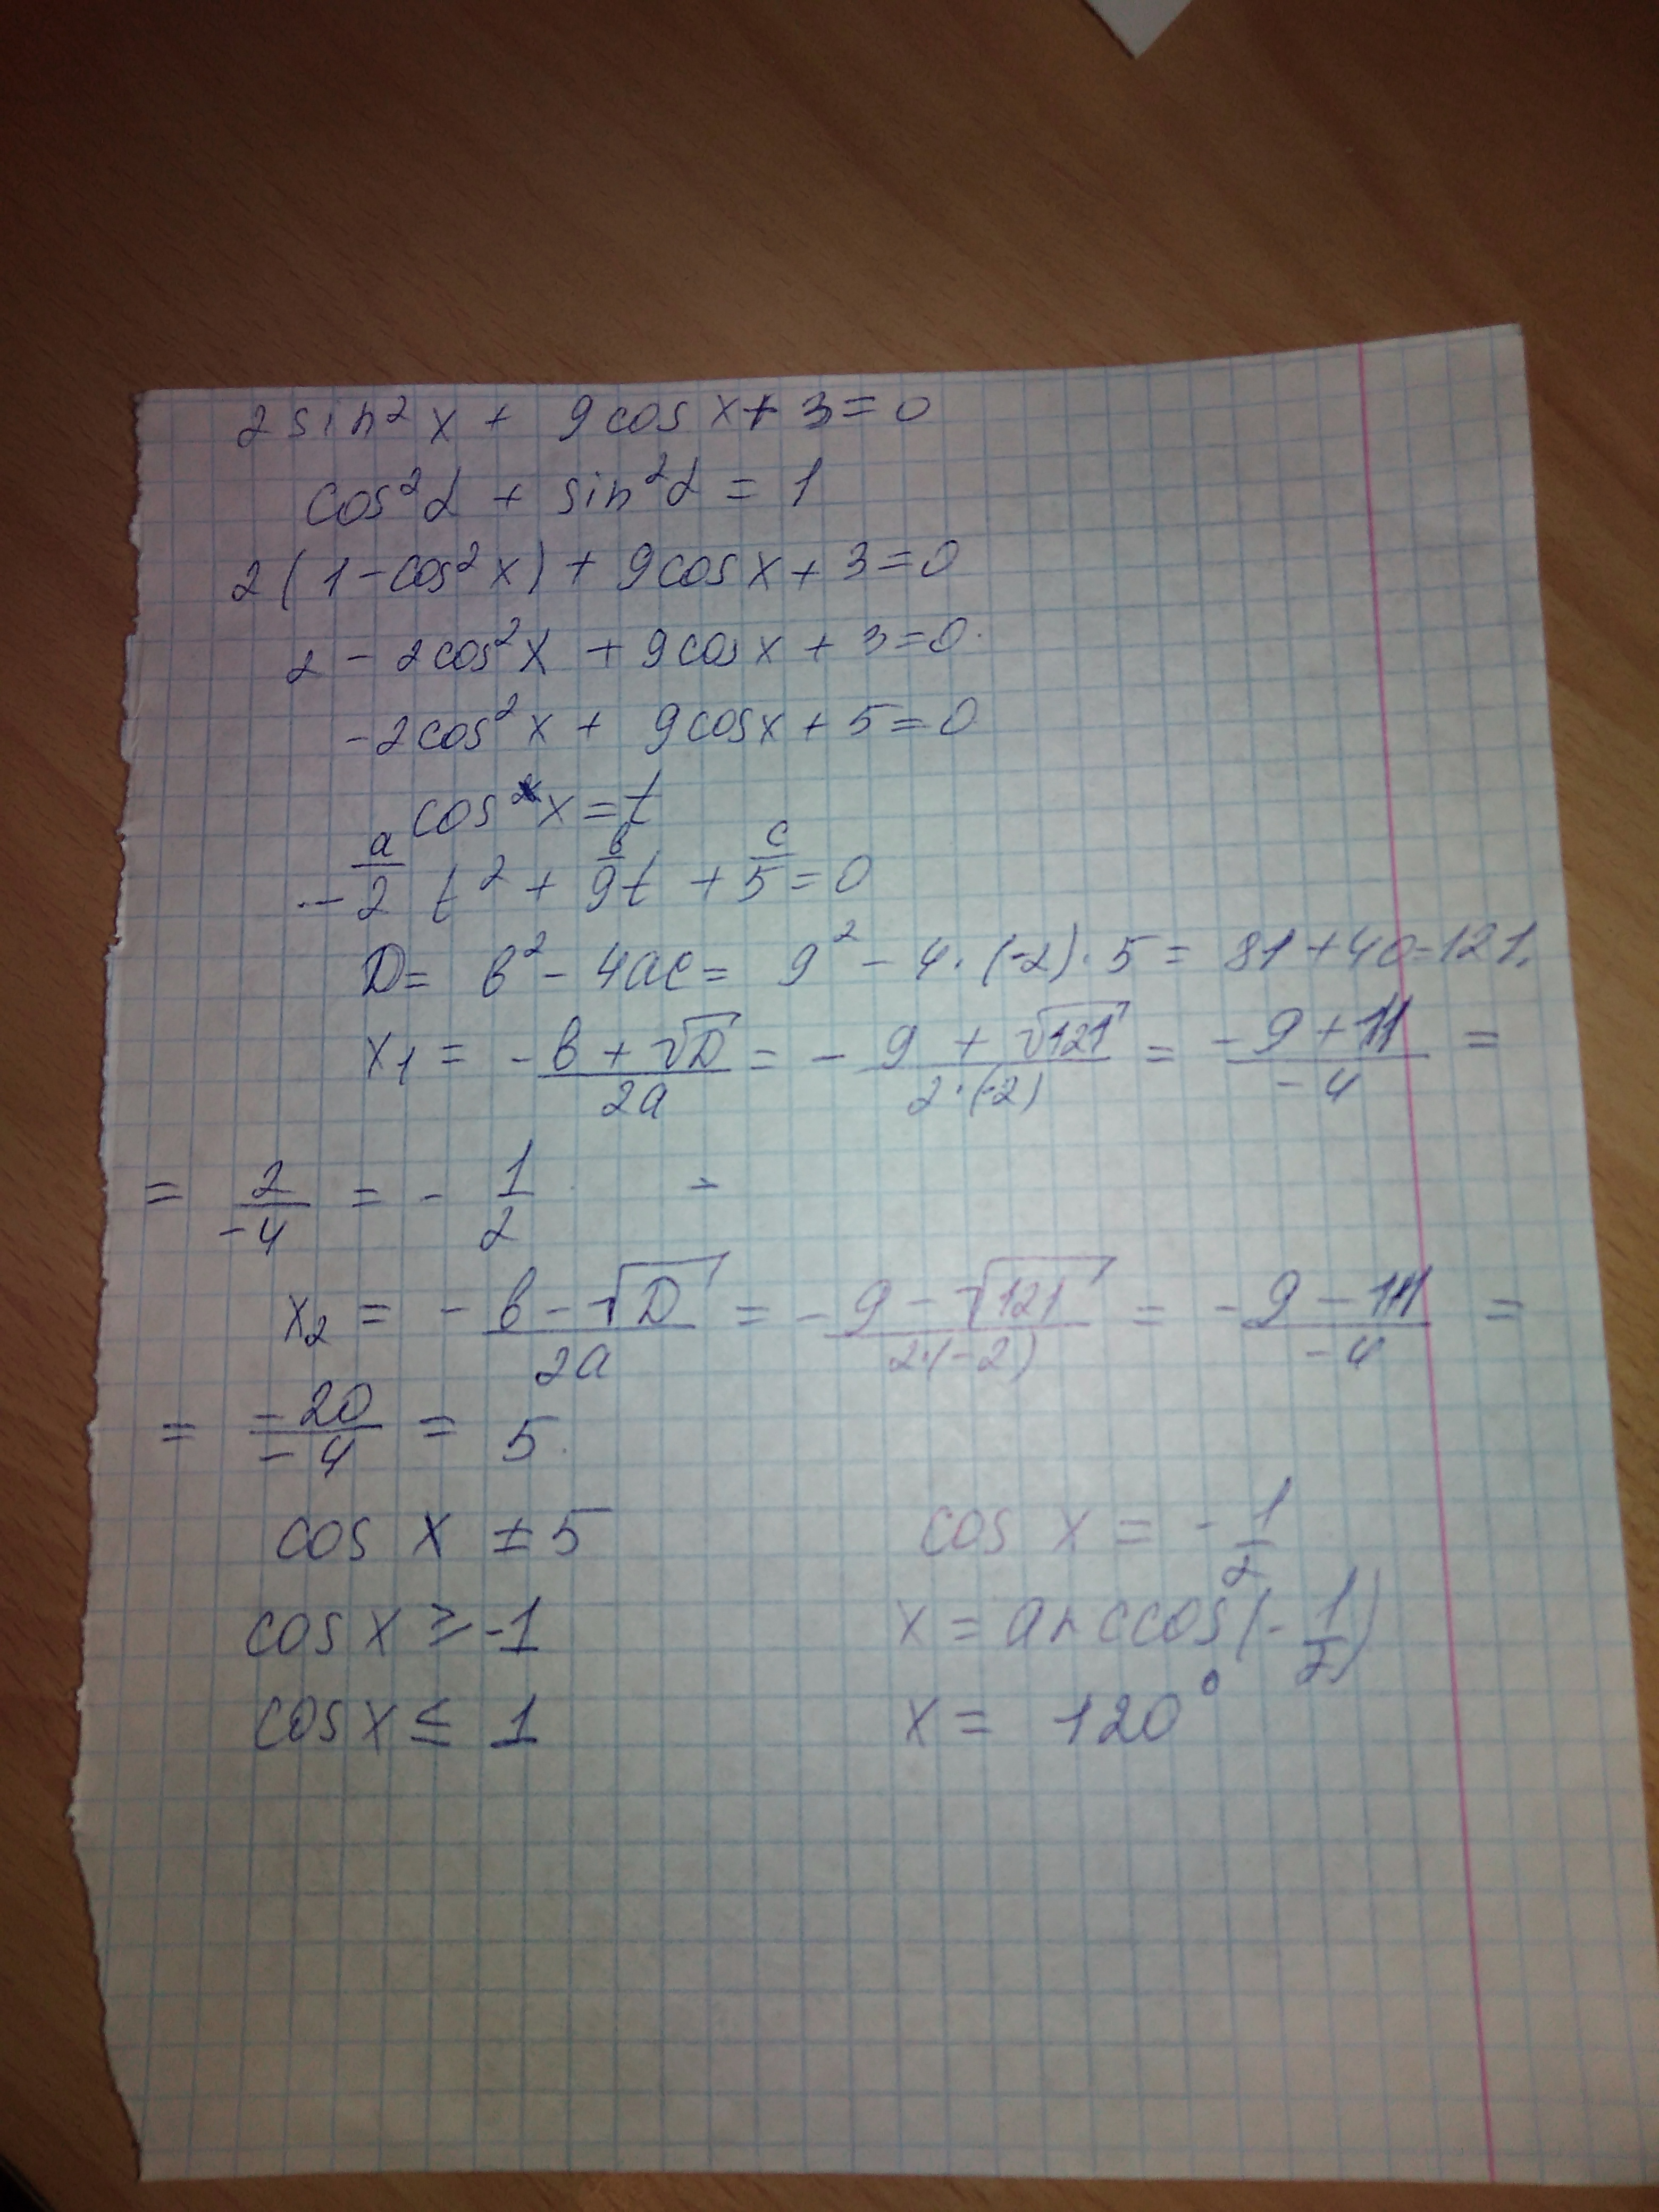 2 sin² x + 9 cos x + 3 = 0
cos² α + sin² α = 1
2 (1 - cos² x) + 9 cos x + 3 = 0
2 - 2cos² x + 9 cos x + 3 = 0
-2cos² x + 9cos x + 5 = 0
cos x = t
a в c
-2 t² + 9t + 5 = 0
D = в² - 4ac = 9² - 4 · (-2) · 5 = 81 + 40 = 121.
x₁ = (-в + √D) / 2a = (-9 + √121) / 2·(-2) = (-9 + 11) / -4 =
= 2 / -4 = - 1/2
x₂ = (-в - √D) / 2a = (-9 - √121) / 2·(-2) = (-9 - 11) / -4 =
= -20 / -4 = 5
cos x ± 5 cos x = - 1/2
cos x ≥ -1 x = arccos(- 1/2)
cos x ≤ 1 x = 120°